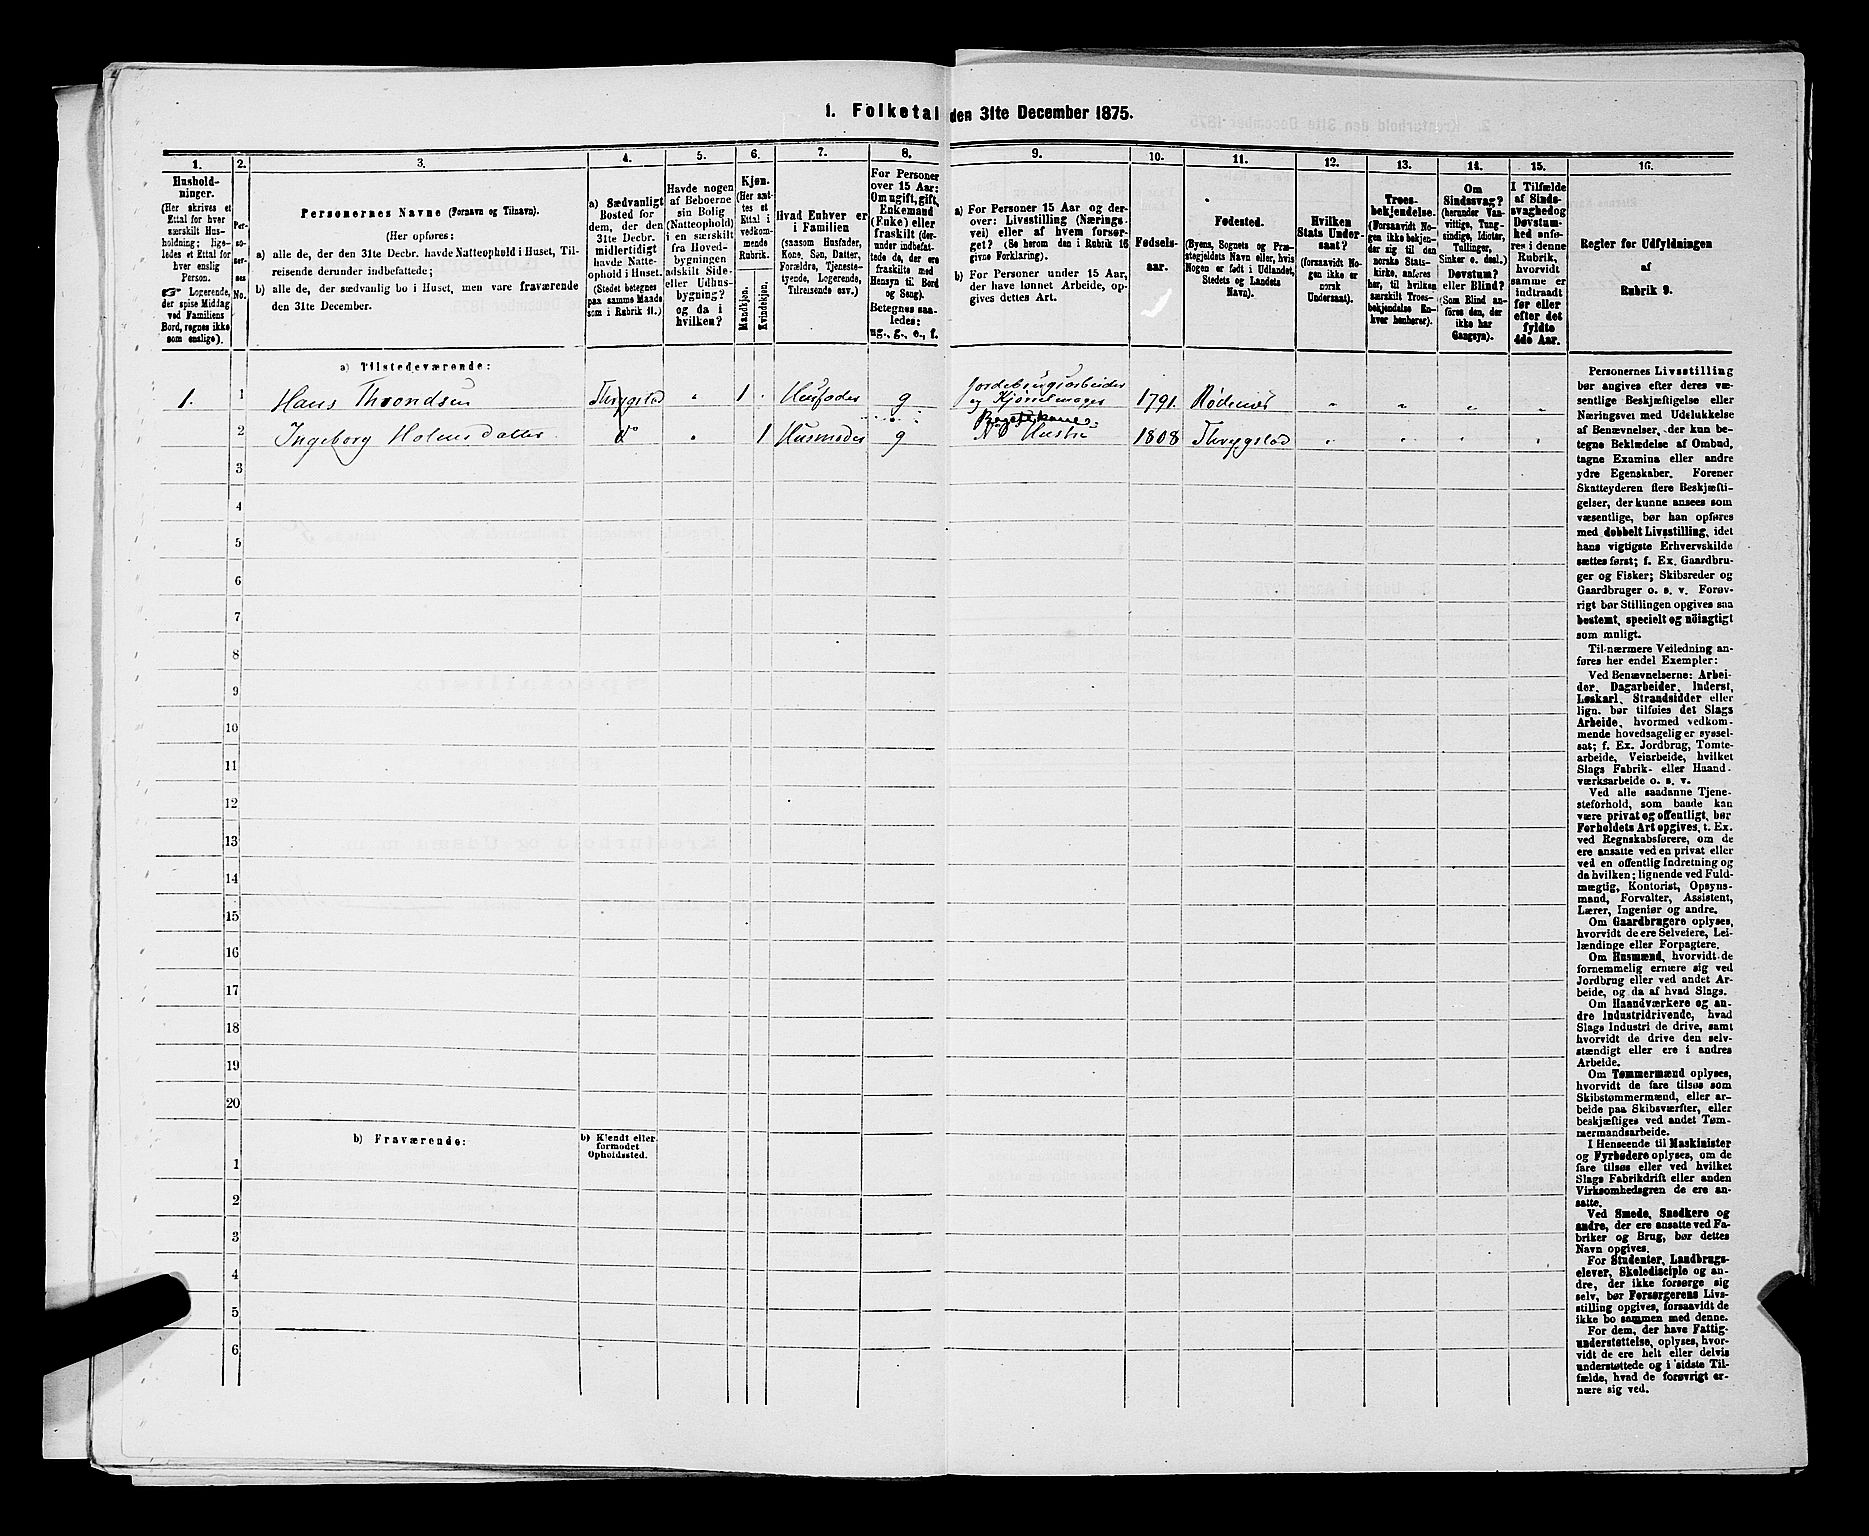 1. Folketal den 31te December 1875.
1.
Hushold-
ninger.
(Her skrives et
Ettal for hver
særskilt Hus-
holdning; lige-
ledes et Ettal for
hver enslig
Person.
☞ Logerende,
der spise Middag
ved Familiens
Bord, regnes ikke
som enslige).
2.
Per-
so-
ner-
nes
No.
3.
Personernes Navne (Fornavn og Tilnavn).
(Her opføres:
a) alle de, der den 31te Decbr. havde Natteophold i Huset, Til-
reisende derunder indbefattede;
b) alle de, der sædvanlig bo i Huset, men vare fraværende
den 31te December.
4.
a) Sædvanligt
Bosted for
dem, der den
31te Decbr.
midlertidigt
havde Natte-
ophold i Huset.
(Stedet betegnes
paa samme Maade
som i Rubrik 11.)
5.
Havde nogen
af Beboerne
sin Bolig
(Natteophold)
i en særskilt
fra Hoved-
bygningen
adskilt Side-
eller Udhus-
bygning?
og da i
hvilken?
6.
Kjøn.
(Her sæt-
tes et
Ettal i
vedkom-
mende
Rubrik.
Mandkjøn.
Kvindekjøn.
7.
Hvad Enhver er
i Familien
(saasom Husfader,
Kone, Søn, Datter,
Forældre, Tjeneste-
tyende, Logerende,
Tilreisende osv.)
8.
For Personer
over 15 Aar:
Om ugift, gift,
Enkemand
(Enke) eller
fraskilt (der-
under indbefat-
tede de, der ere
fraskilte med
Hensyn til Bord
og Seng).
Betegnes saa-
ledes:
ug., g., e., f.
9.
a) For Personer 15 Aar og der-
over: Livsstilling (Nærings-
vei) eller af hvem forsør-
get? (Se herom den i Rubrik 16
givne Forklaring).
b) For Personer under 15 Aar,
der have lønnet Arbeide, op-
gives dettes Art.
10.
Fødsels-
aar.
11.
Fødested.
(Byens, Sognets og Præ-
stegjeldets Navn eller, hvis
Nogen er født i Udlandet,
Stedets og Landets
Navn).
12.
Hvilken
Stats Under-
saat?
(forsaavidt No-
gen ikke er
norsk
Undersaat).
13.
Troes-
bekjendelse.
(Forsaavidt No-
gen ikke bekjen-
der sig til den
norske Stats-
kirke, anføres
her, til hvilken
særskilt Troes-
bekjendelse En-
hver henhører).
14.
Om
Sindssvag?
(herunder Van-
vittige, Tung-
sindige, Idioter,
Tullinger,
Sinker o. desl.)
Døvstum?
eller Blind?
(Som Blind an-
føres den, der
ikke har
Gangsyn).
15.
I Tilfælde
af Sinds-
svaghed og
Døvstum-
hed anfø-
res i denne
Rubrik,
hvorvidt
samme er
indtraadt
før eller
efter det
fyldte
4de Aar.
16.
Regler for Udfyldningen
af
Rubrik 9.
a) Tilstedeværende:
1. 1 Hans Throndsen Thrygstad " 1 . Husfader g Jordbrugsarbeider
og 1791. Rødenæs " " " "
2 Ingeborg Holmsdatter do " 1 Husmoder g Hustru 1808 Thrygstad " " " "
3
4
5
6
7
8
9
10
11
12
13
14
15
16
17
18
19
20
b) Fraværende:
b) Kjendt eller
formodet
Opholdssted.
1
2
3
4
5
6
Personernes Livsstilling
bør angives efter deres væ-
sentlige Beskjæftigelse eller
Næringsvei med Udelukkelse
af Benævnelser, der kun be-
tegne Beklædelse af Ombud,
tagne Examina eller andre
ydre Egenskaber. Forener
Skatteyderen flere Beskjæfti-
gelser, der kunne ansees som
væsentlige, bør han opføres
med dobbelt Livsstilling, idet
hans vigtigste Erhvervskilde
sættes først; f. Ex. Gaardbru-
ger og Fisker; Skibsreder og
Gaardbruger o. s. v. Forøv-
rigt bør Stillingen opgives saa
bestemt, specielt og nöiagtigt
som muligt.
Til nærmere Veiledning an-
føres her endel Exempler:
Ved Benævnelserne: Arbei-
der, Dagarbeider, Inderst,
Løskarl, Strandsidder eller
lign. bør tilføies det Slags
Arbeide, hvormed vedkom-
mende hovedsagelig er syssel-
sat; f. Ex. Jordbrug, Tomte-
arbeide, Veiarbeide, hvilket
Slags Fabrik- eller Haand-
værksarbeide o. s. v.
Ved alle saadanne Tjene-
steforhold, som baade kan
være privat og offentligt, bør
Forholdets Art opgives, t. Ex.
ved Regnskabsførere, om de
ere ansatte ved en privat eller
ved en offentlig Indretning og
da hvilken; lignende ved Fuld-
mægtig, Kontorist, Opsyns-
mand, Forvalter, Assistent,
Lærer, Ingeniør og andre.
Om Gaardbrugere oplyses,
hvorvidt de ere Selveiere, Lei-
lændinge eller Forpagtere.
Om Husmænd, hvorvidt de
fornemmelig ernære sig ved
Jordbrug eller ved andet Ar-
beide, og da af hvad Slags.
Om Haandværkere og an-
dre Industridrivende, hvad
Slags Industri de drive, samt
hvorvidt de drive den selv-
stændigt eller ere i andres
Arbeide.
Om Tømmermænd oplyses,
hvorvidt de fare tilsøs som
Skibstømmermænd, eller ar-
beide paa Skibsværfter, eller
beskjæftiges ved andet Tøm-
mermandsarbeide.
I Henseende til Maskinister
og Fyrbødere oplyses, om de
fare tilsøs eller ved hvilket
Slags Fabrikdrift eller anden
Virksomhedsgren de ere an-
satte.
Ved Smede, Snedkere og
andre, der ere ansatte ved Fa-
briker og Brug, bør dettes
Navn opgives.
For Studenter, Landbrugs-
elever, Skoledisciple og an-
dre, der ikke forsørge sig
selv, bør Forsørgerens Livs-
stilling opgives, forsaavidt de
ikke bo sammen med denne.
For dem, der have Fattig-
understøttelse, oplyses, hvor-
vidt de ere helt eller delvis
understøttede og i sidste Til-
fælde, hvad de forøvrigt er-
nære sig ved.